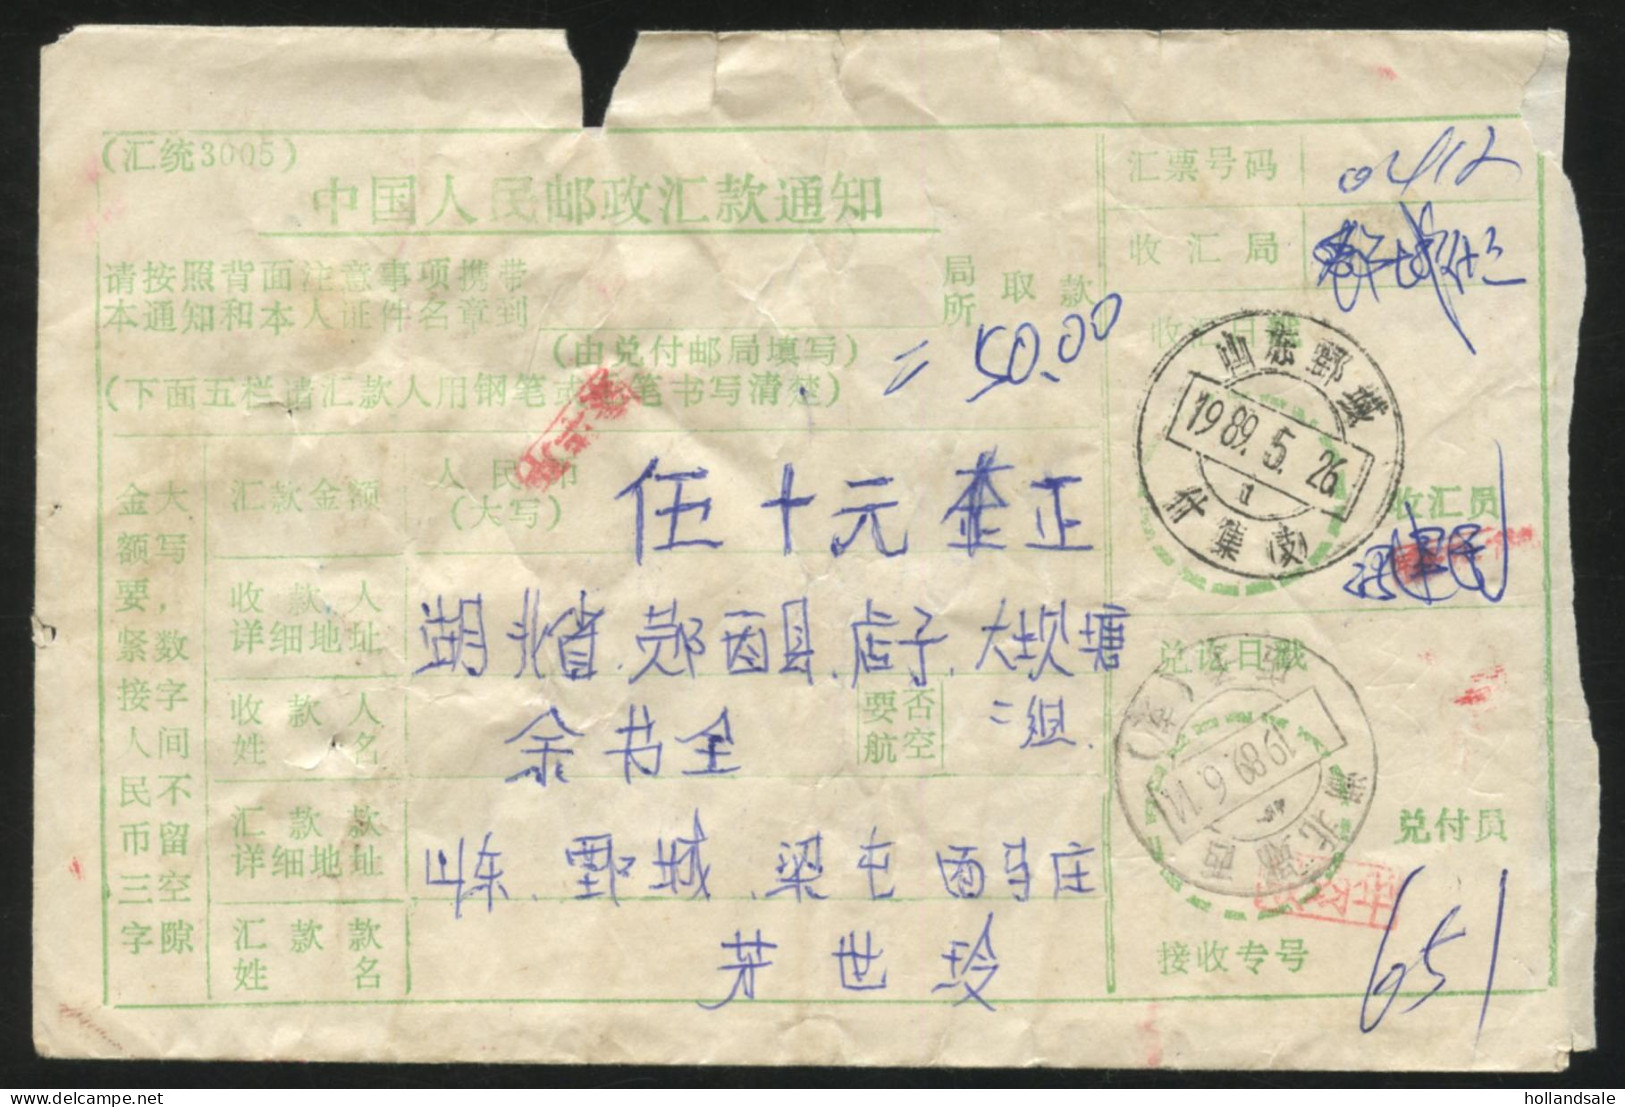 (汇统3005)
中国人民邮政汇款通知
请按照背面注意事项携带
本通知和本人证件名章到
局所 取款
(由兑付邮局填写)
= 50.00
(下面五栏请汇款人用钢笔或毛笔书写清楚)
金额要紧接人民币三字
大写,数字间不留空隙
汇款金额
人民币
(大写)
伍十元 正
收款人
详细地址
湖北省.郧西县.店子.大坝塘
二组.
收款人
姓名
余书全
要否
航空
汇款款
详细地址
山东.鄄城.梁屯 西马庄
汇款款
姓名
世玲
汇票号码
02412
收汇局
收汇日戳
山东鄄城
1989.5.26
什集(支)
收汇员
兑讫日戳
湖北郧西
1989.6.14
兑付员
接收专号
651
hollandsale